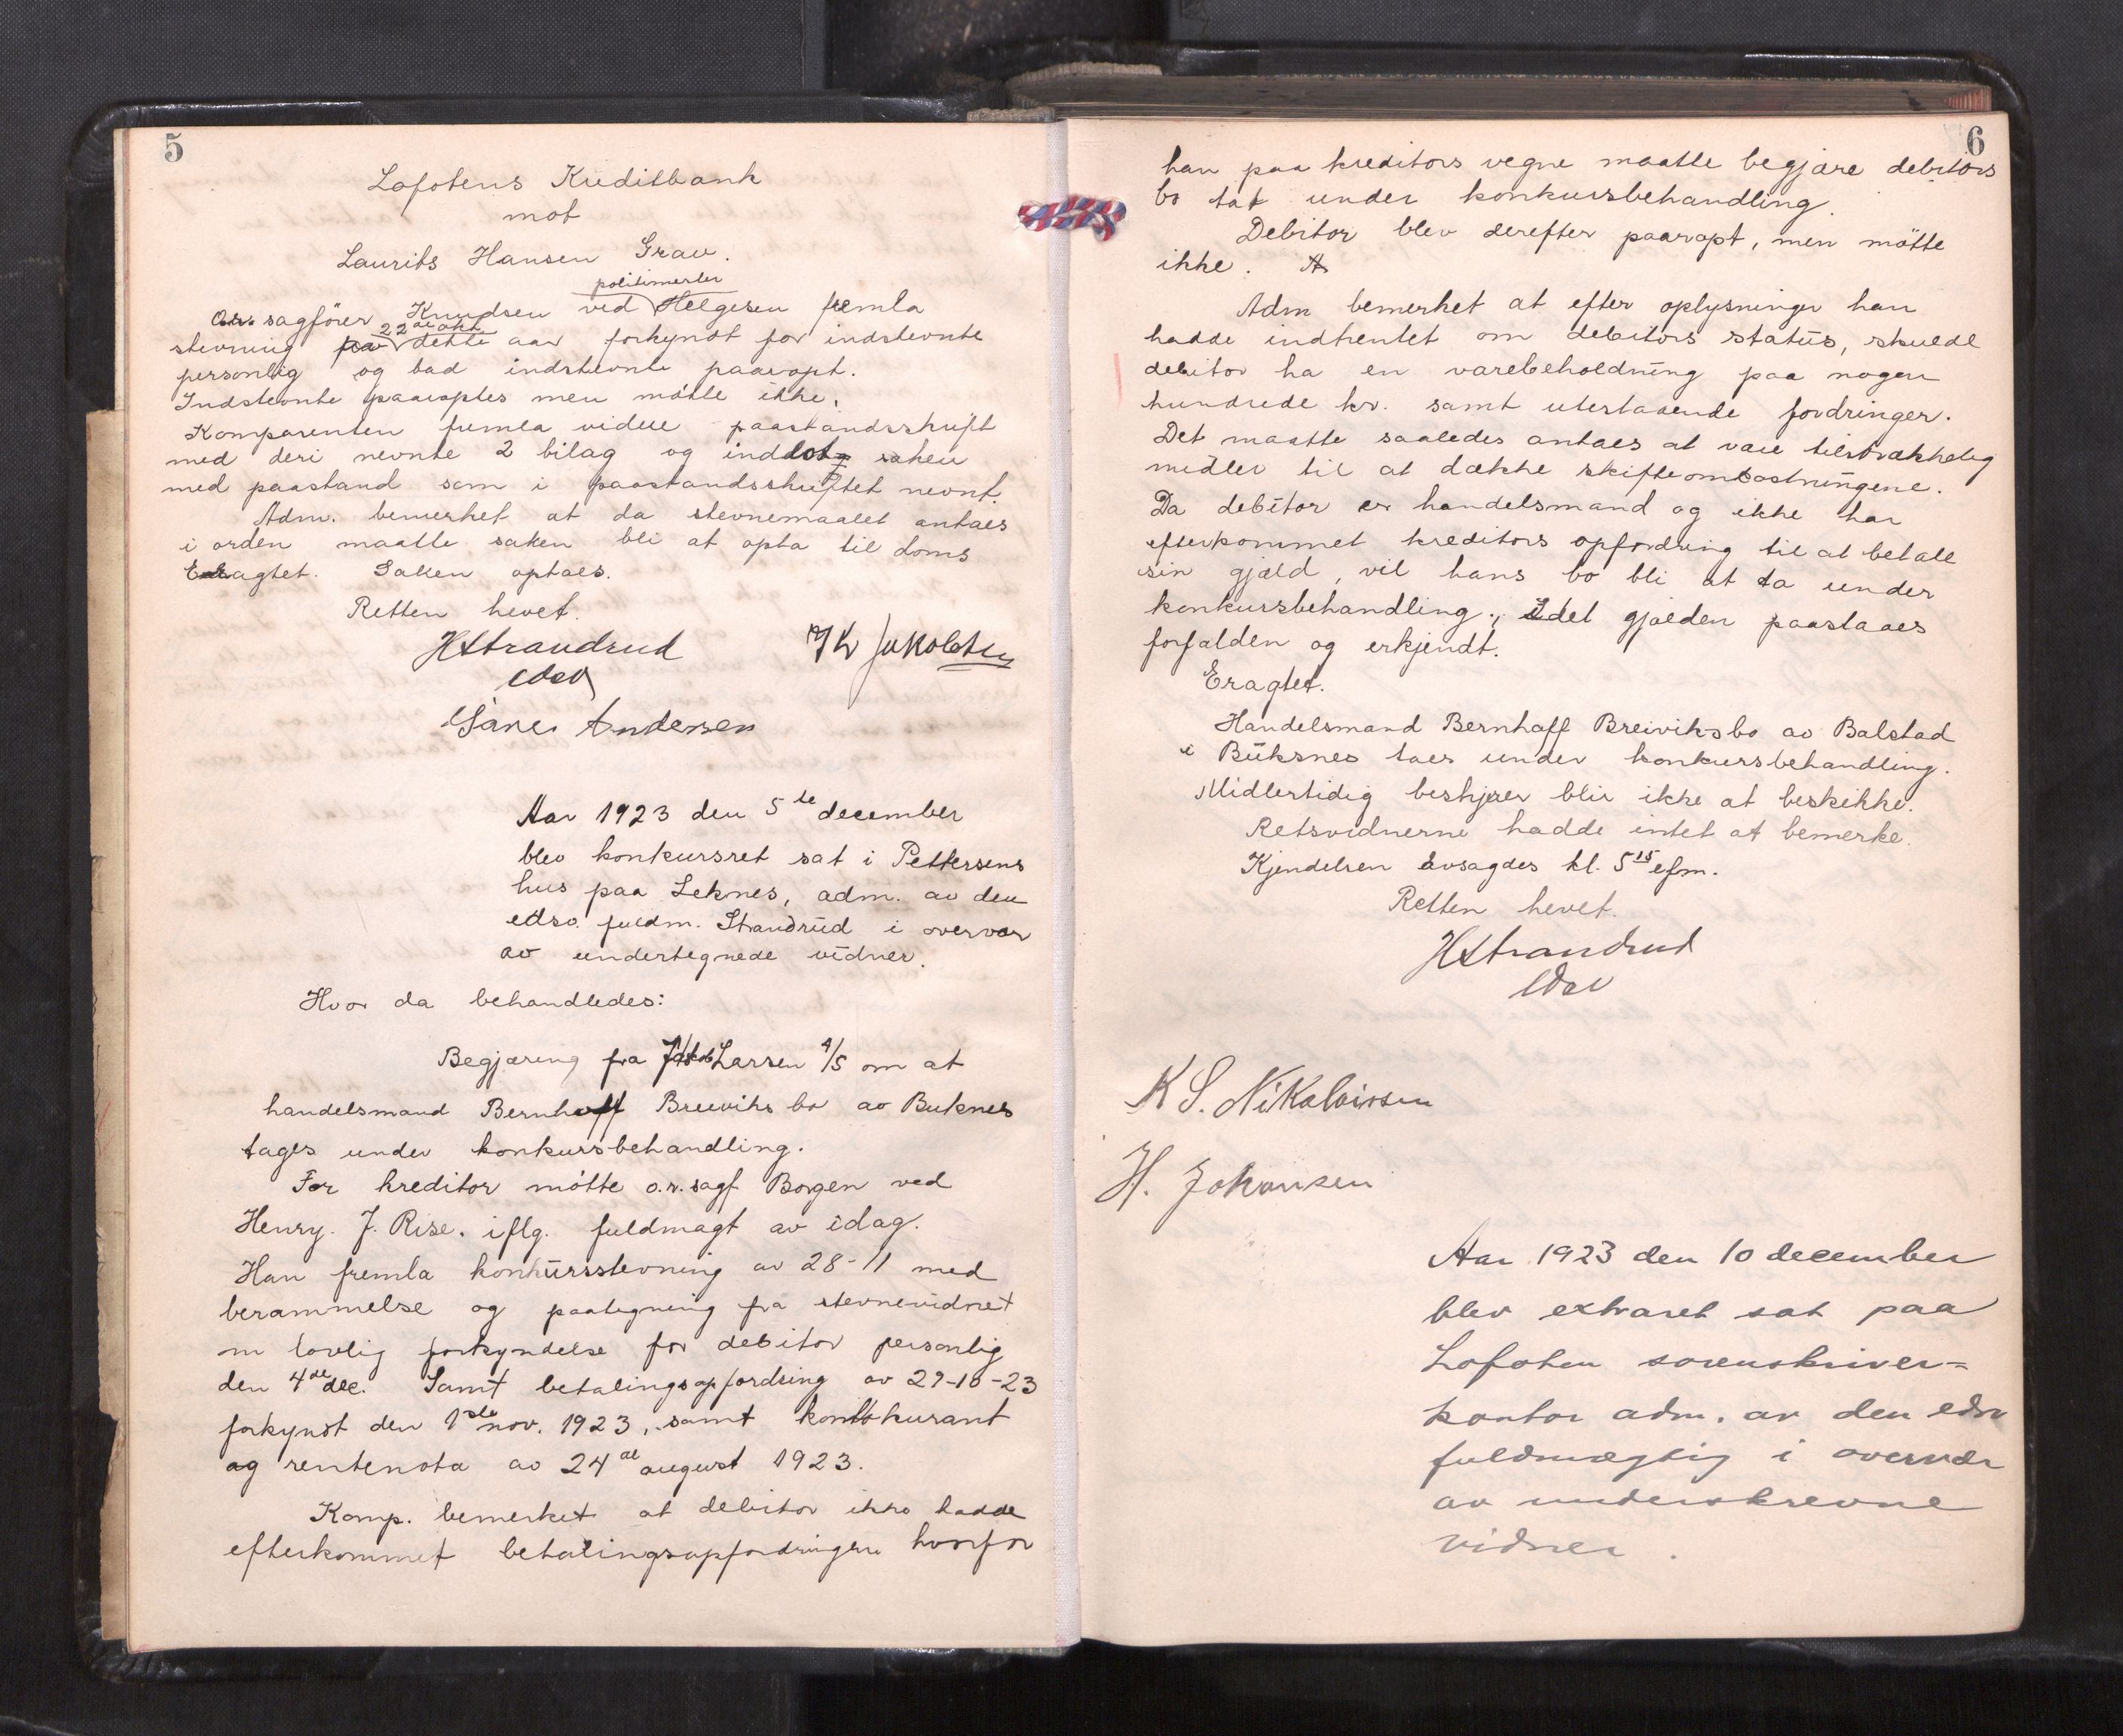 5
Lofotens Kreditbank
mot
Laurits Hansen Grav.
politimester
O.r. sagfører Knudsen ved Helgesen fremla
22de okt.
stevning dette aar forkyndt for indstevnte
personlig og bad indstevnte paaropt.
Indstevnte paaroptes men møtte ikke.
Komparenten fremla videre paastandsskrift
med deri nevnte 2 bilag og indlot saken
med paastand som i paastandsskriftet nevnt.
Adm. bemerket at da stevnemaalet antaes
i orden maatte saken bli at opta til doms
Eragtet. Saken optaes.
Retten hevet.
HStrandrud
edsv
Jakobsen
Andersen
Aar 1923 den 5te december
blev konkursret sat i Pettersens
hus paa Leknes, adm. av den
edsv. fuldm. Strandrud i overvær
av undertegnede vidner.
Hvor da behandledes:
Begjæring fra Jakob Larsen A/S om at
handelsmand Bernhoff Breiviks bo av Buknes
tages under konkursbehandling.
For kreditor møtte o.r.sagf Borgen ved
Henry. J. Rise. iflg. fuldmagt av idag.
Han fremla konkursstevning av 28-11 med
berammelse og paategning fra stevnevidnet
om lovlig forkyndelse for debitor personlig
den 4de dec. Samt betalingsopfordring av 29-10-23
forkyndt den 1ste nov. 1923, samt kontokurant
og rentenota av 24de august 1923.
Komp. bemerket at debitor ikke hadde
efterkommet betalingsopfordringen hvorfor
6
han paa kreditors vegne maatte begjære debitors
bo tat under konkursbehandling.
Debitor blev derefter paaropt, men møtte
ikke.
Adm bemerket at efter oplysninger han
hadde indhentet om debitors status, skulde
debitor ha en varebeholdning paa nogen
hundrede kr. samt utestaaende fordringer.
Det maatte saaledes antaes at være tilstrækkelig
midler til at dække skifteomkostningene.
Da debitor er handelsmand og ikke har
efterkommet kreditors opfordring til at betale
sin gjæld, vil hans bo bli at ta under
konkursbehandling., idet gjælden paastaaes
forfalden og erkjendt.
Eragtet.
Handelsmand Bernhoff Breiviks bo av Balstad
i Buksnes taes under konkursbehandling.
Midlertidig bestyrer blir ikke at beskikke.
Retsvidnerne hadde intet at bemerke.
Kjendelsen avsagdes kl. 5 15 efm.
Retten hevet.
HStrandrud
edsv
K S. Nikolaissen
H. Johansen
Aar 1923 den 10 december
blev extraret sat paa
Lofoten sorenskriver-
kontor adm. av den edsv
fuldmægtig i overvær
av underskrevne
vidner.